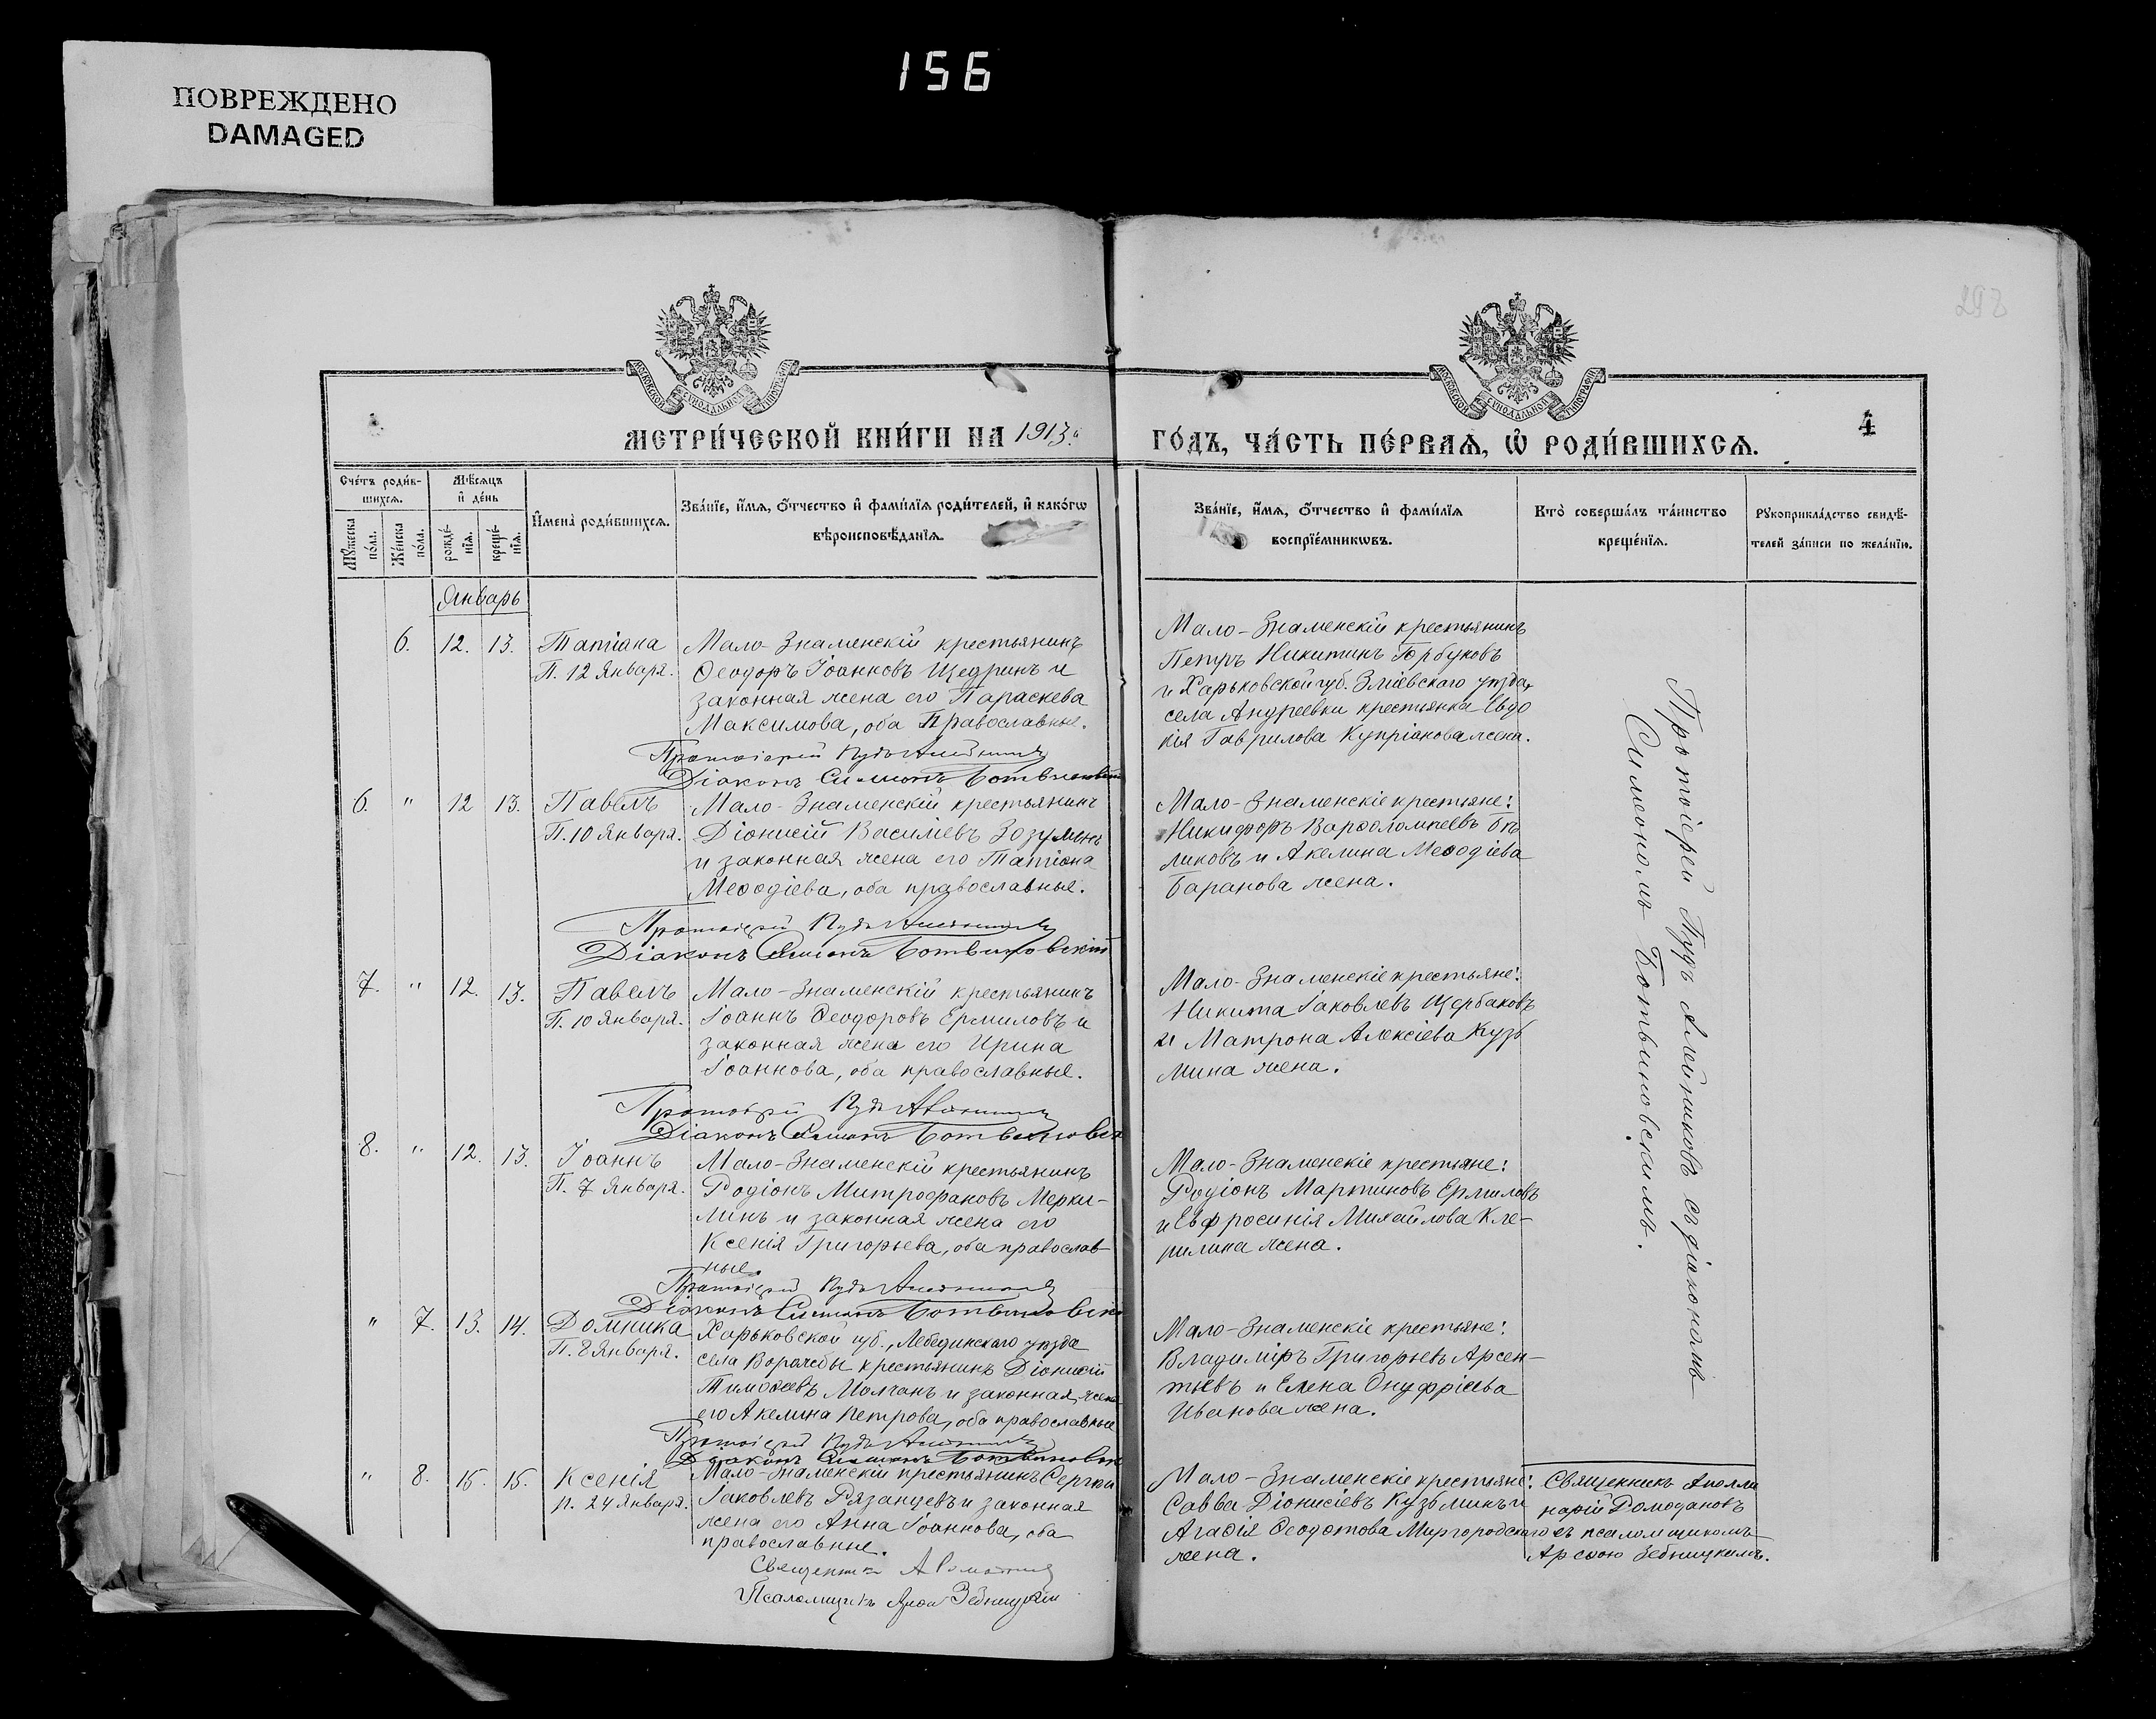 156
ПОВРЕЖДЕНО
DAMAGED
МОСКОВСКОЙ СѴНОДАЛЬНОЙ ТИПОГРАФІИ
МОСКОВСКОЙ СѴНОДАЛЬНОЙ ТИПОГРАФІИ
4
МЕТРИ́ЧЕСКОЙ КНИ́ГИ НА 1913 ГО́ДЪ, ЧА́СТЬ ПЕ́РВАѦ, Ѽ РОДИ́ВШИХСѦ.
Сче́тъ роди́в-
шихсѧ.
Мѣ́сѧцъ
и҆ де́нь
Мꙋ́жеска по́ла.
Же́нска по́ла.
рожде́-
нїѧ.
креще́-
нїѧ.
И҆мена̀ роди́вшихсѧ.
Зва́нїе, и҆́мѧ, ѻ҆́тчество и҆ фами́лїѧ роди́телей, и҆ како́гѡ
вѣроисповѣ́данїѧ.
Зва́нїе, и҆́мѧ, ѻ҆́тчество и҆ фами́лїѧ
воспрїе́мникѡвъ.
Кто̀ соверша́лъ та́инство
креще́нїѧ.
Рꙋкоприкла́дство свидѣ́-
телей за́писи по жела́нїю.
Январь
6. 12. 13. Татіана
П. 12 Января.
Мало-Знаменскій крестьянинъ
Ѳеодоръ Іоанновъ Щедринъ и
законная жена его Параскева
Максимова, оба Православные.
Протоіерей Пудъ Алейников
Діаконъ Симонъ Ботвиновскій
Мало-Знаменскій крестьянинъ
Петръ Никитинъ Горбуковъ
и Харьковской губ. Зміевскаго уѣзда,
села Андреевки крестьянка Евдо
кія Гаврилова Купріанова жена.
6. " 12 13. Павелъ
П. 10 Января.
Мало-Знаменскій крестьянинъ
Діонисій Василіевъ Зозулинъ
и законная жена его Татіана
Меѳодіева, оба православные.
Протоіерей Пудъ Алейников
Діаконъ Симонъ Ботвиновскій
Мало-Знаменскіе крестьяне:
Никифоръ Варѳоломѣевъ Бѣ
ликовъ и Акелина Меѳодіева
Баранова жена.
7. " 12. 13. Павелъ
П. 10 Января.
Мало-Знаменскій крестьянинъ
Іоаннъ Ѳеодоровъ Ермиловъ и
законная жена его Ирина
Іоаннова, оба православные.
Протоіерей Пудъ Алейников
Діаконъ Симонъ Ботвиновск
Мало-Знаменскіе крестьяне:
Никита Іаковлевъ Щербаковъ
и Матрона Алексіева Кузь
мина жена.
8. " 12. 13. Іоаннъ
П. 7 Января.
Мало-Знаменскій крестьянинъ
Родіонъ Митрофановъ Мерку-
линъ и законная жена его
Ксенія Григорьева, оба православ-
ные.
Протоіерей Пудъ Алейников
Діаконъ Симонъ Ботвиновскі
Мало-Знаменскіе крестьяне:
Родіонъ Мартиновъ Ермиловъ
и Евфросинія Михайлова Кле-
рилина жена.
" 7. 13. 14. Домника
П. 8 Января.
Харьковской губ., Лебединскаго уѣзда
села Ворожбы крестьянинъ Діонисій
Тимоѳеевъ Молчанъ и законная жена
его Акелина Петрова, оба православные
Протоіерей Пудъ Алейников
Діаконъ Симонъ Ботвиновск
Мало-Знаменскіе крестьяне:
Владиміръ Григорьевъ Арсен-
тьевъ и Елена Онуфріева
Иванова жена.
" 8. 15. 15. Ксенія
П. 24 Января.
Мало-Знаменскій крестьянинъ Сергѣй
Іаковлевъ Рязанцевъ и законная
жена его Анна Іоаннова, оба
православные.
Священникъ А Ромоданов
Псаломщикъ Арсен Зебницкій
Мало-Знаменскіе крестьяне:
Савва Діонисіевъ Кузьминъ и
Агаѳія Ѳеодотова Миргородскаго
жена.
Протоіерей Пудъ Алейниковъ съ діакономъ
Симономъ Ботвиновскимъ.
Священникъ Аполли
нарій Ромодановъ
съ псаломщикомъ
Зебницкимъ.